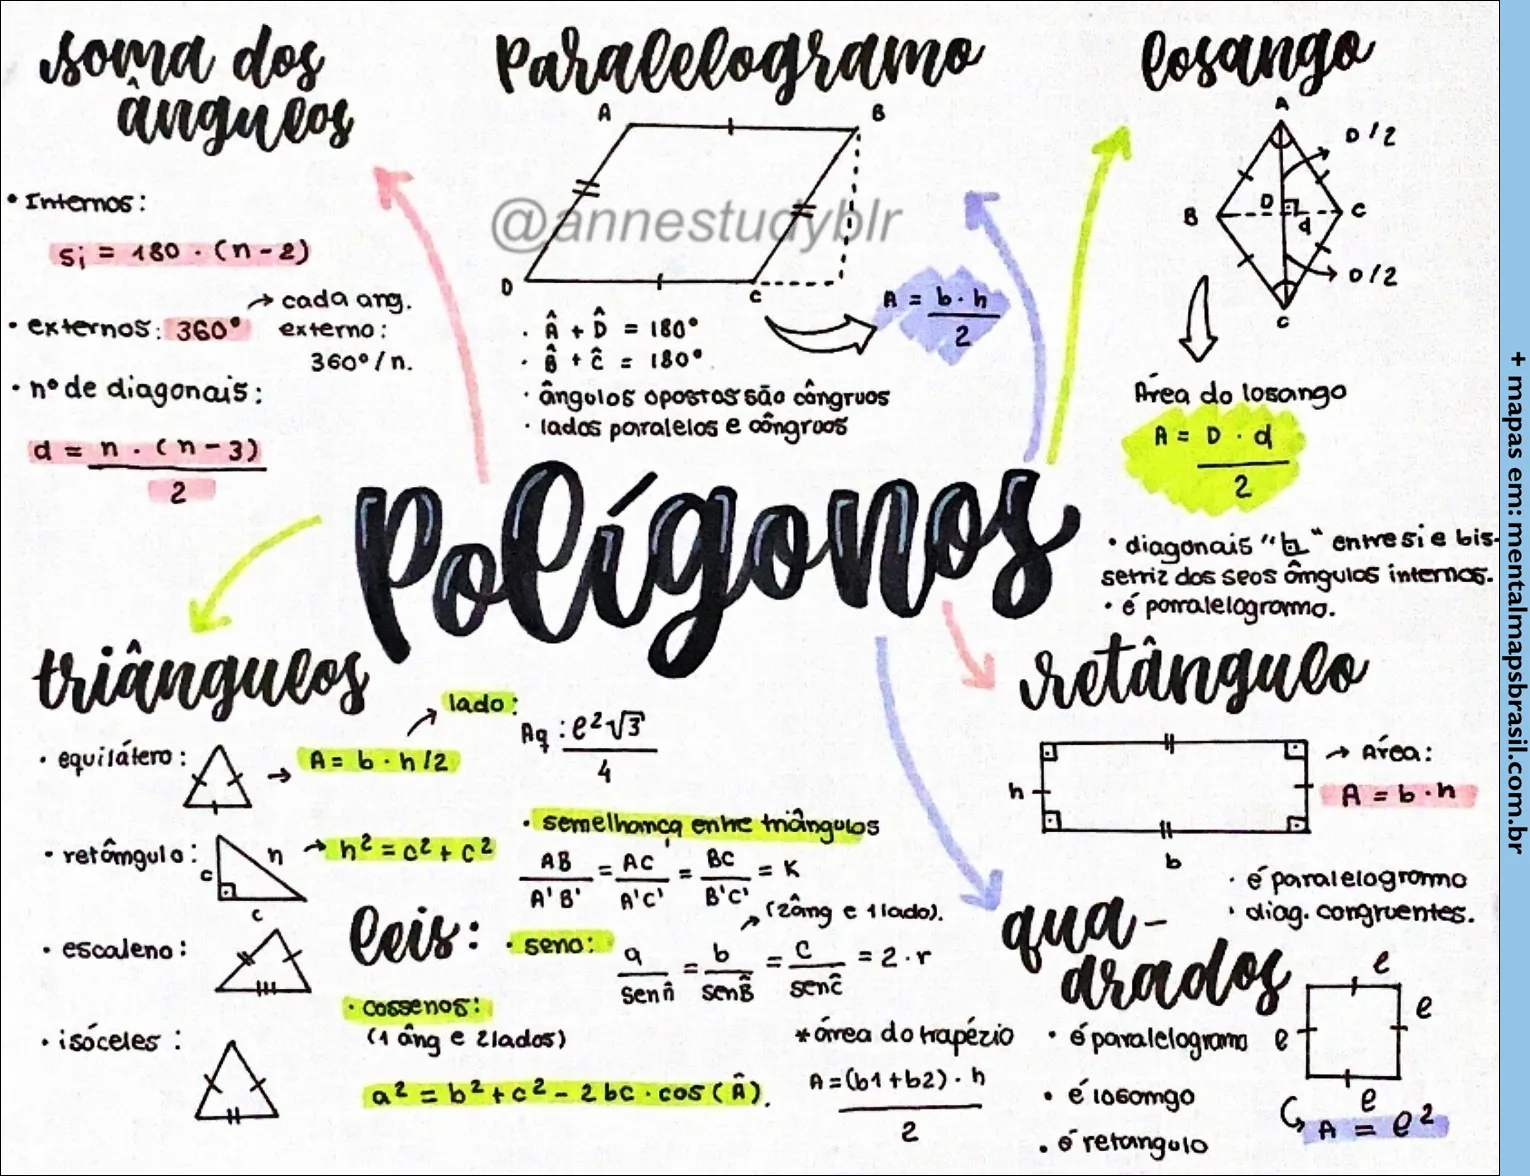 soma dos
ângulos
• Internos:
Si = 180 · (n-2)
→ cada ang.
• externos: 360° externo:
360°/n.
• nº de diagonais:
d = n · (n-3)
2
Paralelogramo
A
B
D
C
@annestudyblr
· Â + D̂ = 180°
· B̂ + Ĉ = 180°
· ângulos opostos são côngruos
· lados paralelos e côngruos
A = b · h
2
losango
A
D/2
B
D
C
d
D/2
C
Área do losango
A = D · d
2
• diagonais "⊾" entre si e bis-
setriz dos seos ângulos internos.
• é paralelogramo.
Polígonos
triângulos
• equilátero:
→ A = b · h/2
lado:
Aq : l²√3
4
• retângulo:
c
h
c
→ h² = c² + c²
• escaleno:
• isóceles:
• semelhança entre triângulos
AB = AC = BC = K
A'B' A'C' B'C'
leis:
• seno:
→ (2âng e 1lado).
a = b = c = 2 · r
senâ senB̂ senĈ
• cossenos:
(1 âng e 2lados)
a² = b² + c² - 2bc · cos(Â).
*área do trapézio
A=(b1+b2) · h
2
retângulo
h
b
→ Área:
A = b · h
· é paralelogramo
· diag. congruentes.
qua-
drados
l
l
l
l
• é paralelogramo
• é losango
• é retangulo
A = l²
+ mapas em: mentalmapsbrasil.com.br